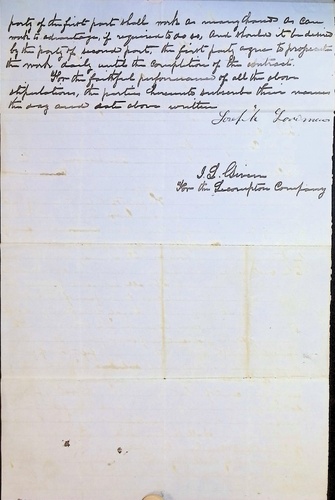 party of the first part shall work as many hands as can
work to advantage, if required to do so, And should it be desired
by the party of second part, the first party agree to prosecute
the work daily until the completion of the contract.
For the faithful performance of all the above
stipulations, the parties hereunto subscribe their names
the day and date above written
J. L. Given
For the Lecompton Company